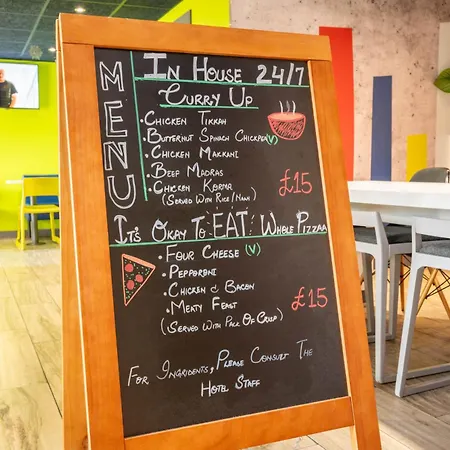 MENU
IN HOUSE 24/7
CURRY UP
• CHICKEN TIKKAH
• BUTTERNUT SPINACH CHICKPEA (V)
• CHICKEN MAKKANI
• BEEF MADRAS
• CHICKEN KORMA
(SERVED WITH RICE/NAAN)
£15
IT'S OKAY TO EAT WHOLE PIZZAA
• FOUR CHEESE (V)
• PEPPORONI
• CHICKEN & BACON
• MEATY FEAST
(SERVED WITH PACK OF CRISP)
£15
FOR INGRIDENTS, PLEASE CONSULT THE
HOTEL STAFF